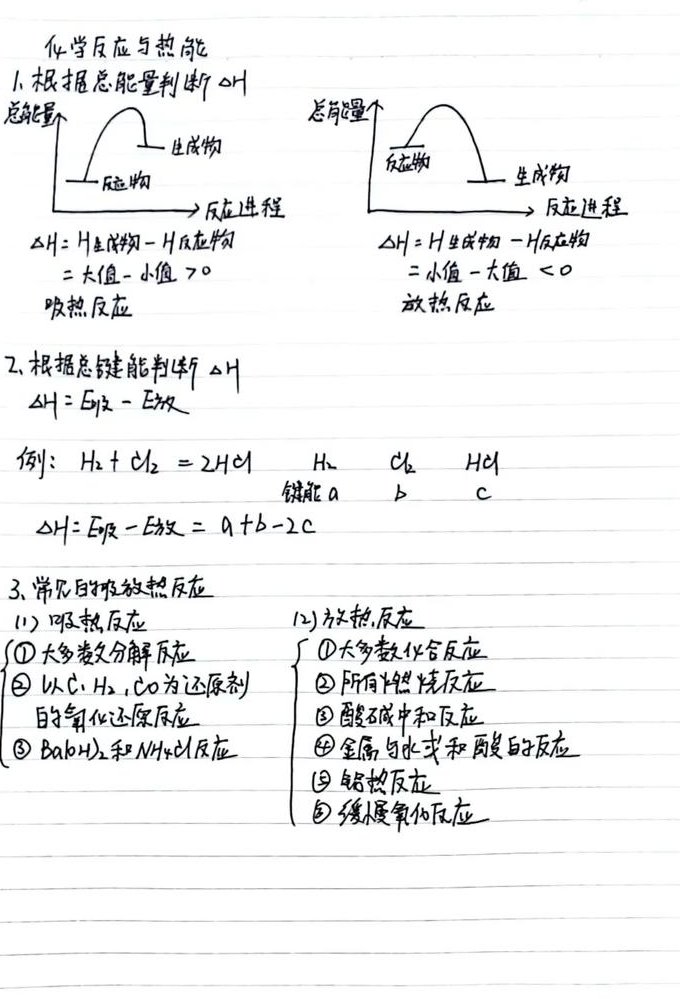 化学反应与热能
1、根据总能量判断 △H
总能量
生成物
反应物
反应进程
△H = H生成物 - H反应物
= 大值 - 小值 > 0
吸热反应
总能量
反应物
生成物
反应进程
△H = H生成物 - H反应物
= 小值 - 大值 < 0
放热反应
2、根据总键能判断 △H
△H = E吸 - E放
例: H₂ + Cl₂ = 2HCl H₂ Cl₂ HCl
键能 a b c
△H = E吸 - E放 = a+b-2c
3、常见的吸放热反应
(1) 吸热反应
① 大多数分解反应
② 以C、H₂、CO为还原剂
的氧化还原反应
③ Ba(OH)₂和NH₄Cl反应
(2) 放热反应
① 大多数化合反应
② 所有燃烧反应
③ 酸碱中和反应
④ 金属与水或和酸的反应
⑤ 铝热反应
⑥ 缓慢氧化反应